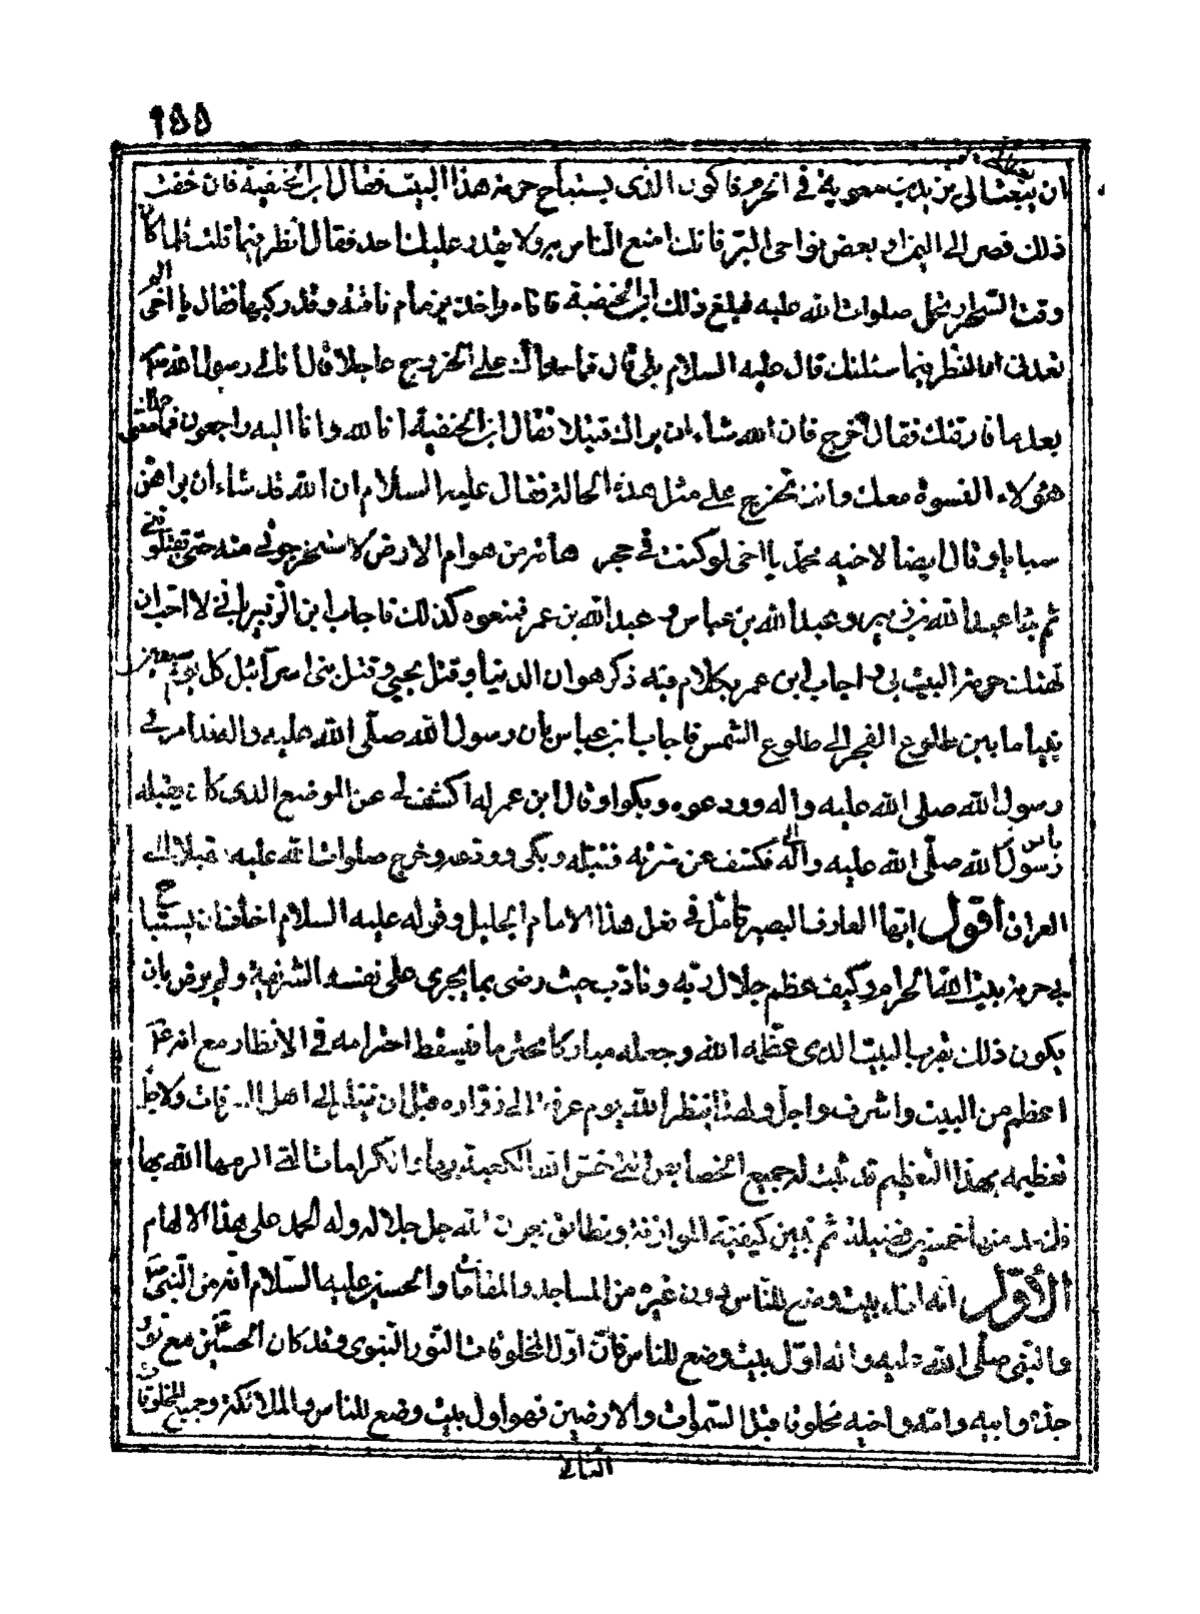 ١٥٥
ان يبعث الى يزيد بن معوية في الحرم فاكون الذى يستباح حرمة هذا البيت فقال ابن الحنفية فان خفت
ذلك فصر الى اليمن او بعض نواحى البر فانك امنع الناس به ولا يقدر عليك احد فقال انظر فيما قلت فلما كان
وقت السحر رتحل صلوات الله عليه فبلغ ذلك ابن الحنفية فاتاه واخذ بزمام ناقته وقد ركبها فقال يا اخى الم
تعدنى النظر فيما سئلتك قال عليه السلام بلى قال فما حداك على الخروج عاجلا قال اتانى رسول الله
بعد ما فارقتك فقال اخرج فان الله شاء ان يراك قتيلا فقال ابن الحنفية انا لله وانا اليه راجعون فما معنى حملك
هؤلاء النسوة معك وانت تخرج على مثل هذه الحالة فقال عليه السلام ان الله قد شاء ان يراهن
سبايا وقال ايضا لاخيه محمد يا اخى لو كنت في حجر هامة من هوام الارض لاستخرجونى منه حتى يقتلونى
ثم جاء عبد الله بن زبير وعبد الله بن عباس وعبد الله بن عمر فمنعوه كذلك فاجاب ابن الزبير بانى لا احب ان
تهتك حرمة البيت بى واجاب ابن عمر بكلام فيه ذكر هوان الدنيا وقتل يحيى وقتل بنى اسرآئيل كل يوم سبعين
نبيا ما بين طلوع الفجر الى طلوع الشمس فاجاب ابن عباس بان رسول الله صلى الله عليه واله قد امرنى
رسول الله صلى الله عليه واله وودعوه وبكوا وقال ابن عمر له اكشف لى عن الموضع الذى كان يقبله
رسول الله صلى الله عليه واله فكشف عن سرته فقبله وبكى وودعه وخرج صلوات الله عليه مقبلا الى
العراق اقول ايها العارف البصير تامل في نقل هذا الامام الجليل وقوله عليه السلام اخاف ان يستباح
بى حرمة بيت الله الحرام وكيف عظم جلال ربه وتادب حيث رضى بما يجرى على نفسه الشريفة ولم يرض بان
يكون ذلك بقرب البيت الذى عظمه الله وجعله مباركا محترما فيسقط احترامه في الانظار مع انه
اعظم من البيت واشرف واجل ولهذا ينظر الله يوم عرفة الى زواره قبل ان ينظر الى اهل عرفات ولاجل
تعظيمه بهذا التعظيم قد ثبت له جميع الخصايص التى خص الله الكعبة بها والكرامات التى اكرمها الله بها
فضيلة ثم نبين كيفية الموازنة وتطابق الله جل جلاله وله الحمد على هذا الالهام
الأول انه اول بيت وضع للناس دون غيره من المساجد والمقامات والحسين عليه السلام انه من النبى
والنبى صلى الله عليه وانه اول بيت وضع للناس فان اول المخلوقات النور النبوى وقد كان الحسين مع نور
جده وابيه وامه واخيه مخلوقا قبل السموات والارضين فهو اول بيت وضع للناس والملائكة وجميع المخلوقات
الثانى